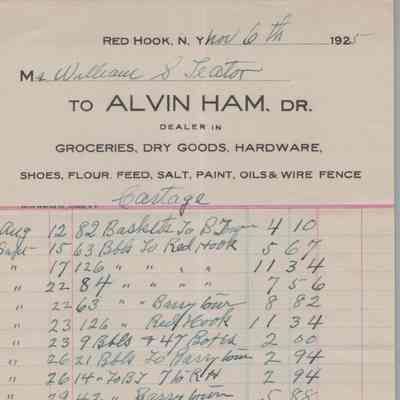 RED HOOK, N. Y. Nov 6th 1925
Mr William S Teator
TO ALVIN HAM, DR.
DEALER IN
GROCERIES, DRY GOODS, HARDWARE,
SHOES, FLOUR, FEED, SALT, PAINT, OILS & WIRE FENCE
Cartage
Aug 12 82 Baskets To B Town 4 10
Sept 15 63 Bbls To Red Hook 5 67
" 17 126 " " " " 11 34
" 22 84 " " " " 7 56
" 22 63 " " Barrytown 8 82
" 23 126 " Red Hook 11 34
" 23 9 Bbls + 47 Boxes 2 00
" 26 21 Bbls To Barrytown 2 94
" 26 14 - To BT 7 to RH 2 94
" 29 42 " Barrytown 5 88